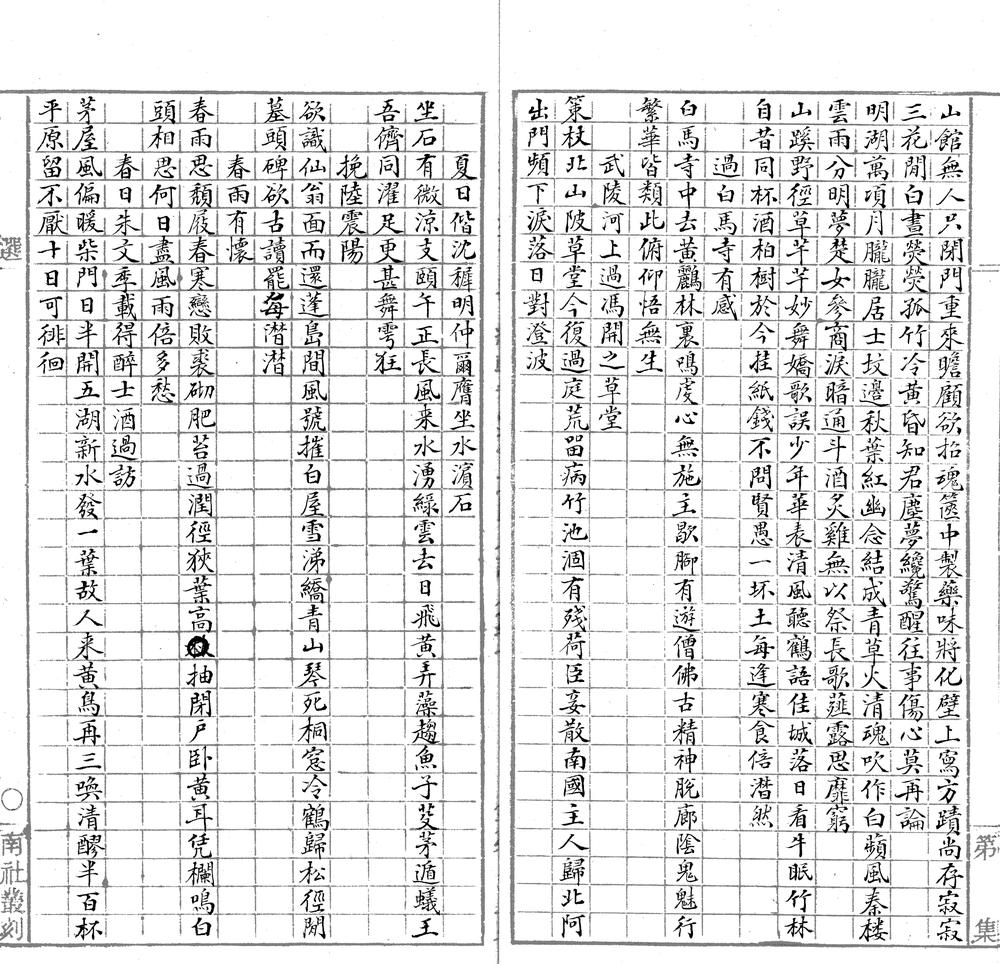 第 集
山館無人只閉門重來瞻顧欲招魂篋中製藥味將化壁上寫方蹟尚存寂寂
三花閒白晝熒熒孤竹冷黃昏知君塵夢纔驚醒往事傷心莫再論
明湖萬項月朧朧居士墳邊秋葉紅幽念結成青草火清魂吹作白蘋風秦楼
雲雨分明夢楚女參商淚暗通斗酒炙雞無以祭長歌薤露思靡窮
山蹊野徑草芊芊妙舞嬌歌誤少年華表清風聽鶴語佳城落日看牛眠竹林
自昔同杯酒柏樹於今挂紙錢不問賢愚一坏土每逢寒食倍潜然
過白馬寺有感
白馬寺中去黃鸝林裏鳴虔心無施主歇脚有遊僧佛古精神脫廊陰鬼魅行
繁華皆類此俯仰悟無生
武陵河上過馮開之草堂
策杖北山陂草堂今復過庭荒留病竹池涸有殘荷臣妾散南國主人歸北阿
出門頻下淚落日對澄波
夏日偕沈穉明仲爾膺坐水濱石
坐石有微涼支頤午正長風来水湧綠雲去日飛黃弄藻趨魚子芟茅遁蟻王
吾儕同濯足更甚舞雩狂
挽陸震陽
欲識仙翁面而還蓬島間風號摧白屋雪涕繑青山琴死桐窓冷鶴歸松徑閒
墓頭碑欲古讀罷每潜潜
春雨有懷
春雨思頹屐春寒戀敗裘砌肥苔過潤徑狹葉高抽閉戶卧黃耳凭欄鳴白
頭相思何日盡風雨倍多愁
春日朱文季載得醉士酒過訪
茅屋風偏暖柴門日半開五湖新水發一葉故人来黃鳥再三喚清醪半百杯
平原留不厭十日可徘徊
選 〇 南社叢刻